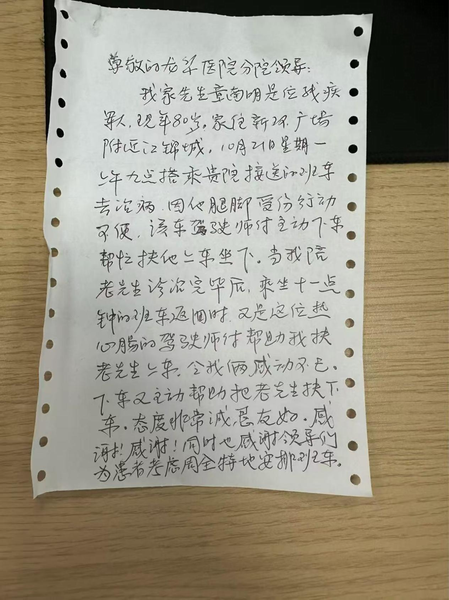 尊敬的龙华医院分院领导:
我家先生童南明是位残疾
军人,现年80岁,家住新环广场
附近江锦城,10月21日星期一
上午九点搭乘贵院接送的班车
去治病,因他腿脚受伤行动
不便,该车驾驶师付主动下车
帮忙扶他上车坐下。当我陪
老先生诊治完毕后,乘坐十一点
钟的班车返回时,又是这位热
心肠的驾驶师付帮助我扶
老先生上车,令我俩感动不已。
下车又主动帮助把老先生扶下
车,态度非常诚恳友如。感
谢!感谢!同时也感谢领导们
为患者考虑周全特地安排班车。